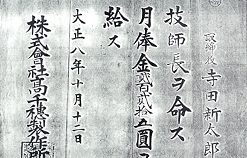 取締役 寺田新太郎
技師長ヲ命ス
月俸金貳百貳拾五圓ヲ
給ス
大正八年十月十二日
株式會社高千穂製作所